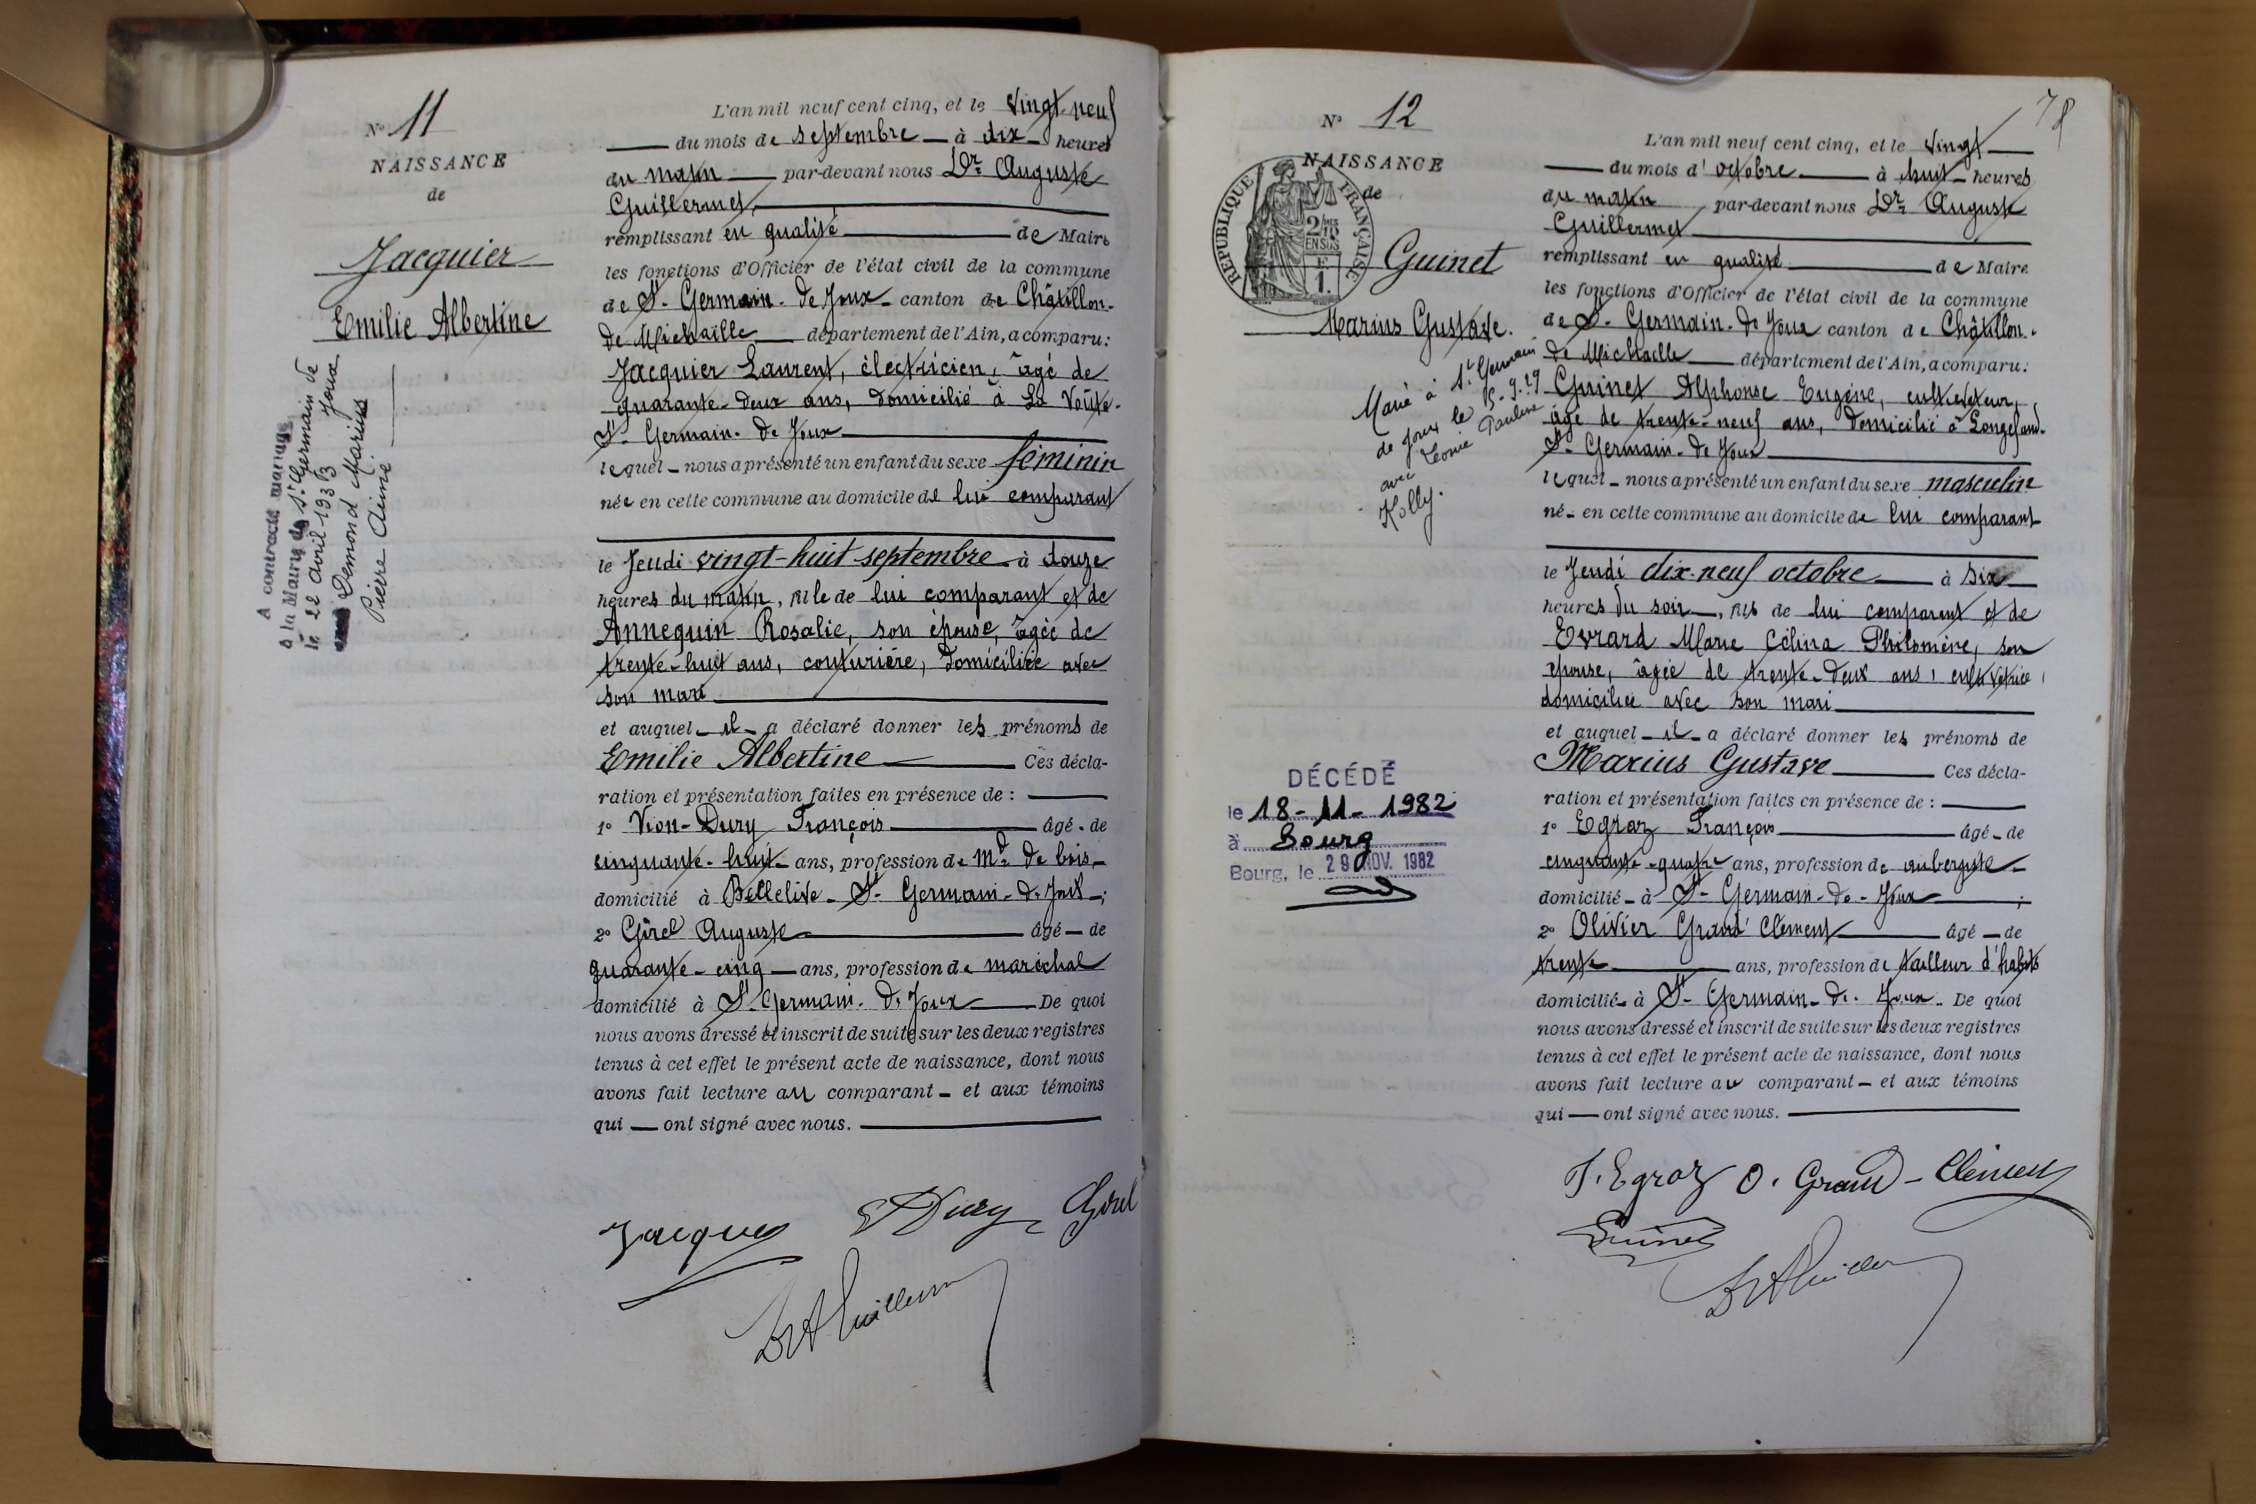 N° 11
NAISSANCE
de
Jacquier
Emilie Albertine
A contracté mariage
à la Mairie de St Germain de
Joux
le 22 avril 1933
avec Demond Marius
Pierre Aimé.
L'an mil neuf cent cinq, et le vingt-neuf
du mois de septembre à dix heures
du matin par-devant nous Dr Auguste
Guillermet,
remplissant en qualité de Maire
les fonctions d'Officier de l'état civil de la commune
de St-Germain-de Joux canton de Châtillon-
de Michaille département de l'Ain, a comparu:
Jacquier Laurent, électricien, âgé de
quarante-deux ans, domicilié à La Voûte-
St-Germain-de Joux
lequel nous a présenté un enfant du sexe féminin
née en cette commune au domicile de lui comparant
le Jeudi vingt-huit septembre à douze
heures du matin, fille de lui comparant et de
Annequin Rosalie, son épouse, âgée de
trente-huit ans, couturière, domiciliée avec
son mari
et auquel il a déclaré donner les prénoms de
Emilie Albertine Ces décla-
ration et présentation faites en présence de :
1° Vion-Dury François âgé de
cinquante-huit ans, profession de Md de bois
domicilié à Bellelive-St-Germain-de Joux ;
2° Girel Auguste âgé de
quarante-cinq ans, profession de maréchal
domicilié à St-Germain-de Joux De quoi
nous avons dressé et inscrit de suite sur les deux registres
tenus à cet effet le présent acte de naissance, dont nous
avons fait lecture au comparant et aux témoins
qui ont signé avec nous.
Jacquier Dury Girel
Dr A Guillermet
78
N° 12
NAISSANCE
de
RÉPUBLIQUE FRANÇAISE
2/10
EN SUS
1F
Guinet
Marius Gustave.
Marié à St Germain
de Joux le 15-9-29
avec Léonie Pauline
Kolly.
DÉCÉDÉ
le 18-11-1982
à Bourg
Bourg, le 29 NOV. 1982
L'an mil neuf cent cinq, et le vingt
du mois d'octobre à huit heures
du matin par-devant nous Dr Auguste
Guillermet
remplissant en qualité de Maire
les fonctions d'Officier de l'état civil de la commune
de St-Germain-de Joux canton de Châtillon-
de Michaille département de l'Ain, a comparu:
Guinet Alphonse Eugène, cultivateur,
âgé de trente-neuf ans, domicilié à Longefand-
St-Germain-de Joux
lequel nous a présenté un enfant du sexe masculin
né en cette commune au domicile de lui comparant
le Jeudi dix-neuf octobre à six
heures du soir, fils de lui comparant et de
Evrard Marie Célina Philomène, son
épouse, âgée de trente-deux ans, cultivatrice,
domiciliée avec son mari
et auquel il a déclaré donner les prénoms de
Marius Gustave Ces décla-
ration et présentation faites en présence de :
1° Egraz François âgé de
cinquante-quatre ans, profession de aubergiste
domicilié à St-Germain-de-Joux ;
2° Olivier Grand Clément âgé de
trente ans, profession de tailleur d'habits
domicilié à St-Germain-de-Joux De quoi
nous avons dressé et inscrit de suite sur les deux registres
tenus à cet effet le présent acte de naissance, dont nous
avons fait lecture au comparant et aux témoins
qui ont signé avec nous.
F. Egraz O. Grand-Clément
Guinet
Dr A Guillermet